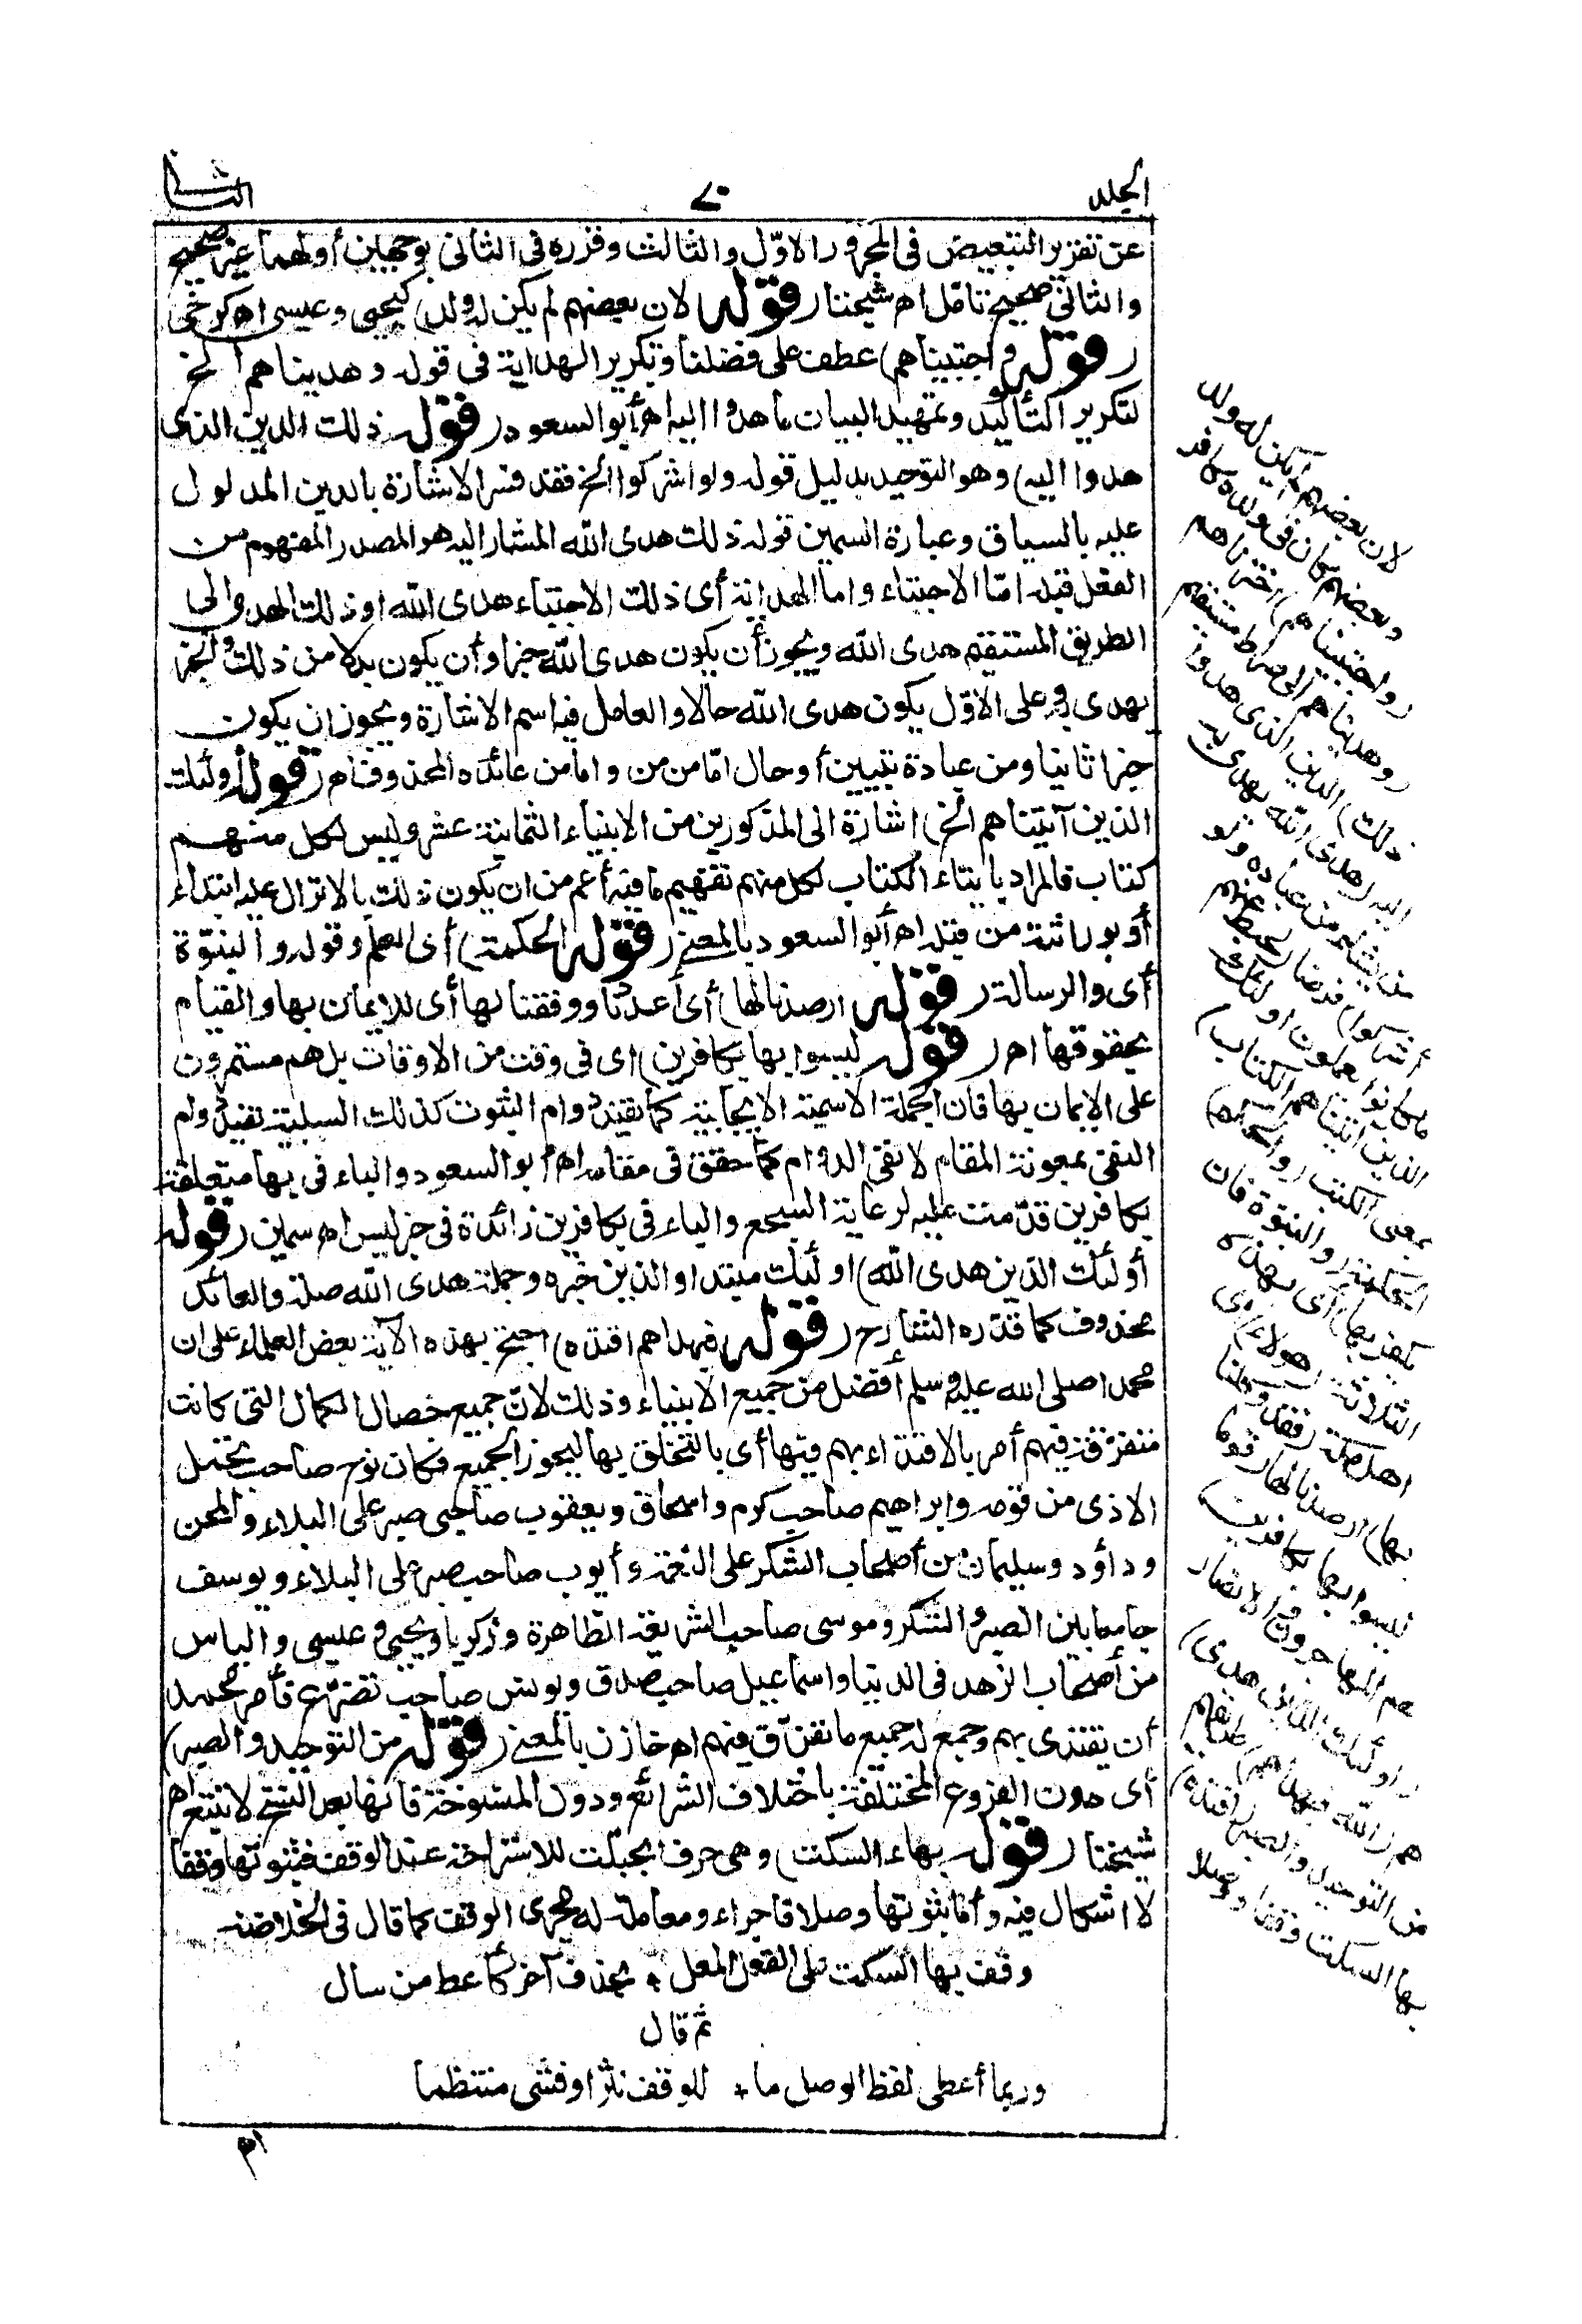 الجلد
٧٠
الثانى
عن تقرير التبعيض فى المجرور الاوّل والثالث وقرره فى الثانى بوجهين أولهما غير صحيح
والثانى صحيح تامّل اه شيخنا (قوله لان بعضهم لم يكن له ولد) كيحيى وعيسى اه كرخى
(قوله واجتبيناهم) عطف على فضلنا وتكرير الهداية فى قوله وهديناهم الخ
لتكرير التأكيد وتمهيد البيان ما هدوا اليه اه أبو السعود (قوله ذلك الدين الذى
هدوا اليه) وهو التوحيد بدليل قوله ولو اشركوا الخ فقد فسر الاشارة بالدين المدلول
عليه بالسياق وعبارة السمين قوله ذلك هدى الله المشار اليه هو المصدر المفهوم من
الفعل قبله امّا الاجتباء واما الهداية أى ذلك الاجتباء هدى الله او ذلك الهدى الى
الطريق المستقيم هدى الله ويجوز أن يكون هدى الله خبرا وأن يكون بدلا من ذلك والخبر
يهدى به وعلى الاوّل يكون هدى الله حالا والعامل فيه اسم الاشارة ويجوز ان يكون
خبرا ثانيا ومن عبادة تبيين أو حال امّا من من واما من عائده المحذوف اه (قوله أولئك
الذين آتيناهم الخ) اشارة الى المذكورين من الانبياء الثمانية عشر وليس لكل منهم
كتاب فالمراد بايتاء الكتاب لكل منهم تفهيم ما فيه أعم من ان يكون ذلك بالانزال عليه ابتداء
أو بوراثته من قبله اه أبو السعود بالمعنى (قوله الحكمة) أى العلم وقوله والنبوّة
أى والرسالة (قوله ارصدنا لها) أى أعددنا ووفقنا لها أى للايمان بها والقيام
بحقوقها اه (قوله ليسوا بها بكافرين) اى فى وقت من الاوقات بل هم مستمرون
على الايمان بها فان الجملة الاسمية الايجابية كما تفيد دوام الثبوت كذلك السلبية تفيد دوام
النفى بمعونة المقام لا نفى الدوام كما حقق فى مقامه اه أبو السعود والباء فى بها متعلقة
بكافرين قدّمت عليه لرعاية السجع والباء فى بكافرين زائدة فى خبر ليس اه سمين (قوله
أولئك الذين هدى الله) اولئك مبتدا والذين خبره وجملة هدى الله صلة والعائد
محذوف كما قدّره الشارح (قوله فبهداهم اقتده) احتج بهذه الآية بعض العلماء على ان
محمدا صلى الله عليه وسلم أفضل من جميع الانبياء وذلك لانّ جميع خصال الكمال التى كانت
متفرّقة فيهم أمر بالاقتداء بهم فيها أى بالتخلق بها ليحوز الجميع فكان نوح صاحب تحمل
الاذى من قومه وابراهيم صاحب كرم واسحاق ويعقوب صاحبى صبر على البلاء والمحن
وداؤد وسليمان من أصحاب الشكر على النعمة وأيوب صاحب صبر على البلاء ويوسف
جامعا بين الصبر والشكر وموسى صاحب الشريعة الظاهرة وزكريا ويحيى وعيسى والياس
من أصحاب الزهد فى الدنيا واسماعيل صاحب صدق ويونس صاحب تضرّع فأمر محمد
أن يقتدى بهم وجمع له جميع ما تفرّق فيهم اه خازن بالمعنى (قوله من التوحيد والصبر)
أى دون الفروع المختلفة باختلاف الشرائع ودون المنسوخة فانها بعد النسخ لا تتبع اه
شيخنا (قوله بهاء السكت) وهى حرف اجتلبت للاستراحة عند الوقف فثبوتها وقفا
لا اشكال فيه وأما ثبوتها وصلا فاجراء ومعاملة له مجرى الوقف كما قال فى الخلاصة
وقف بها السكت على الفعل المعل * بحذف آخر كأعط من سال
ثم قال
وربما أعطى لفظ الوصل ما * للوقف نثرا وفشى منتظما
اه
لان بعضهم لم يكن له ولد
وبعضهم كان فى ولده كافر
(واجتبيناهم) اخترناهم
(وهديناهم الى صراط مستقيم
ذلك) الدين الذى هدوا
اليه (هدى الله يهدى به
من يشاء من عباده ولو
أشركوا) فرضا (لحبط عنهم
ما كانوا يعملون اولئك
الذين اتيناهم الكتاب)
بمعنى الكتب (والحكم)
الحكمة (والنبوة فان
يكفر بها) أى بهذه
الثلاثة (هؤلاء) أى
اهل مكة (فقد وكلنا
بها) ارصدنا لها (قوما
ليسوا بها بكافرين)
هم المهاجرون والانصار
(اولئك الذين هدى)
هم (الله فبهداهم) طريقهم
من التوحيد والصبر (اقتده)
بهاء السكت وقفا ووصلا